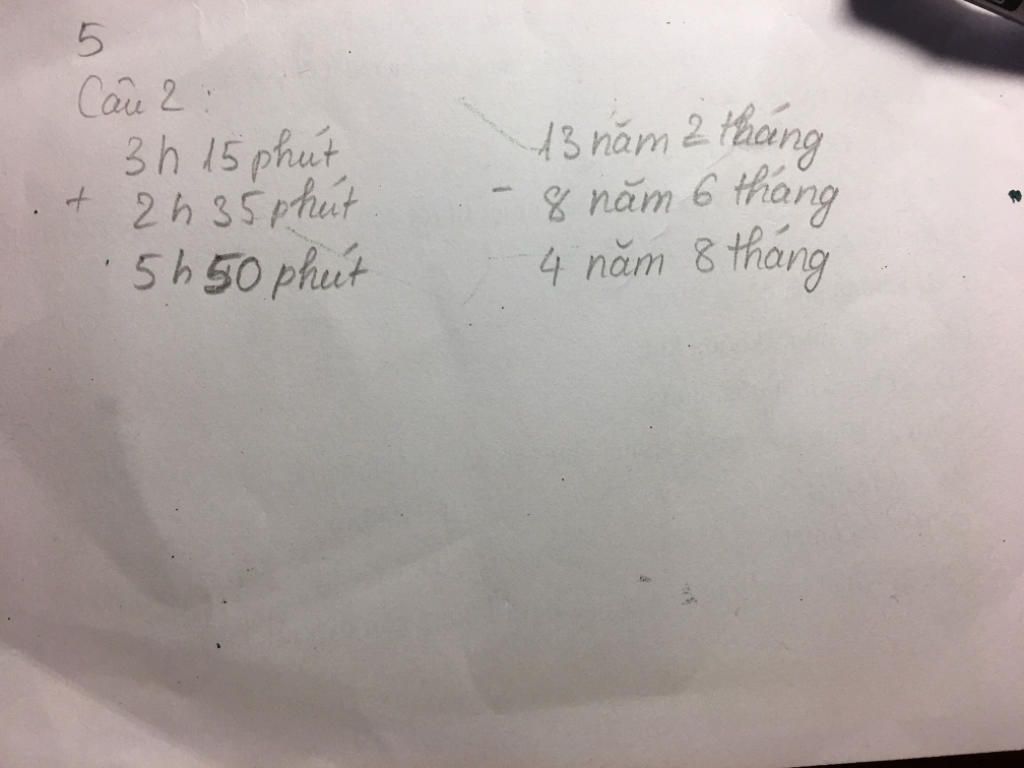 5
Câu 2:
3h 15 phút
+ 2h 35 phút
5h 50 phút
13 năm 2 tháng
- 8 năm 6 tháng
4 năm 8 tháng